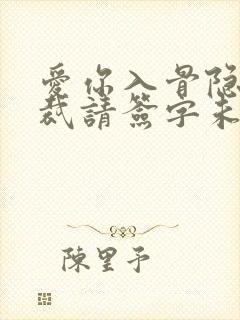 愛你入骨隐
裁請簽字未
陳里予